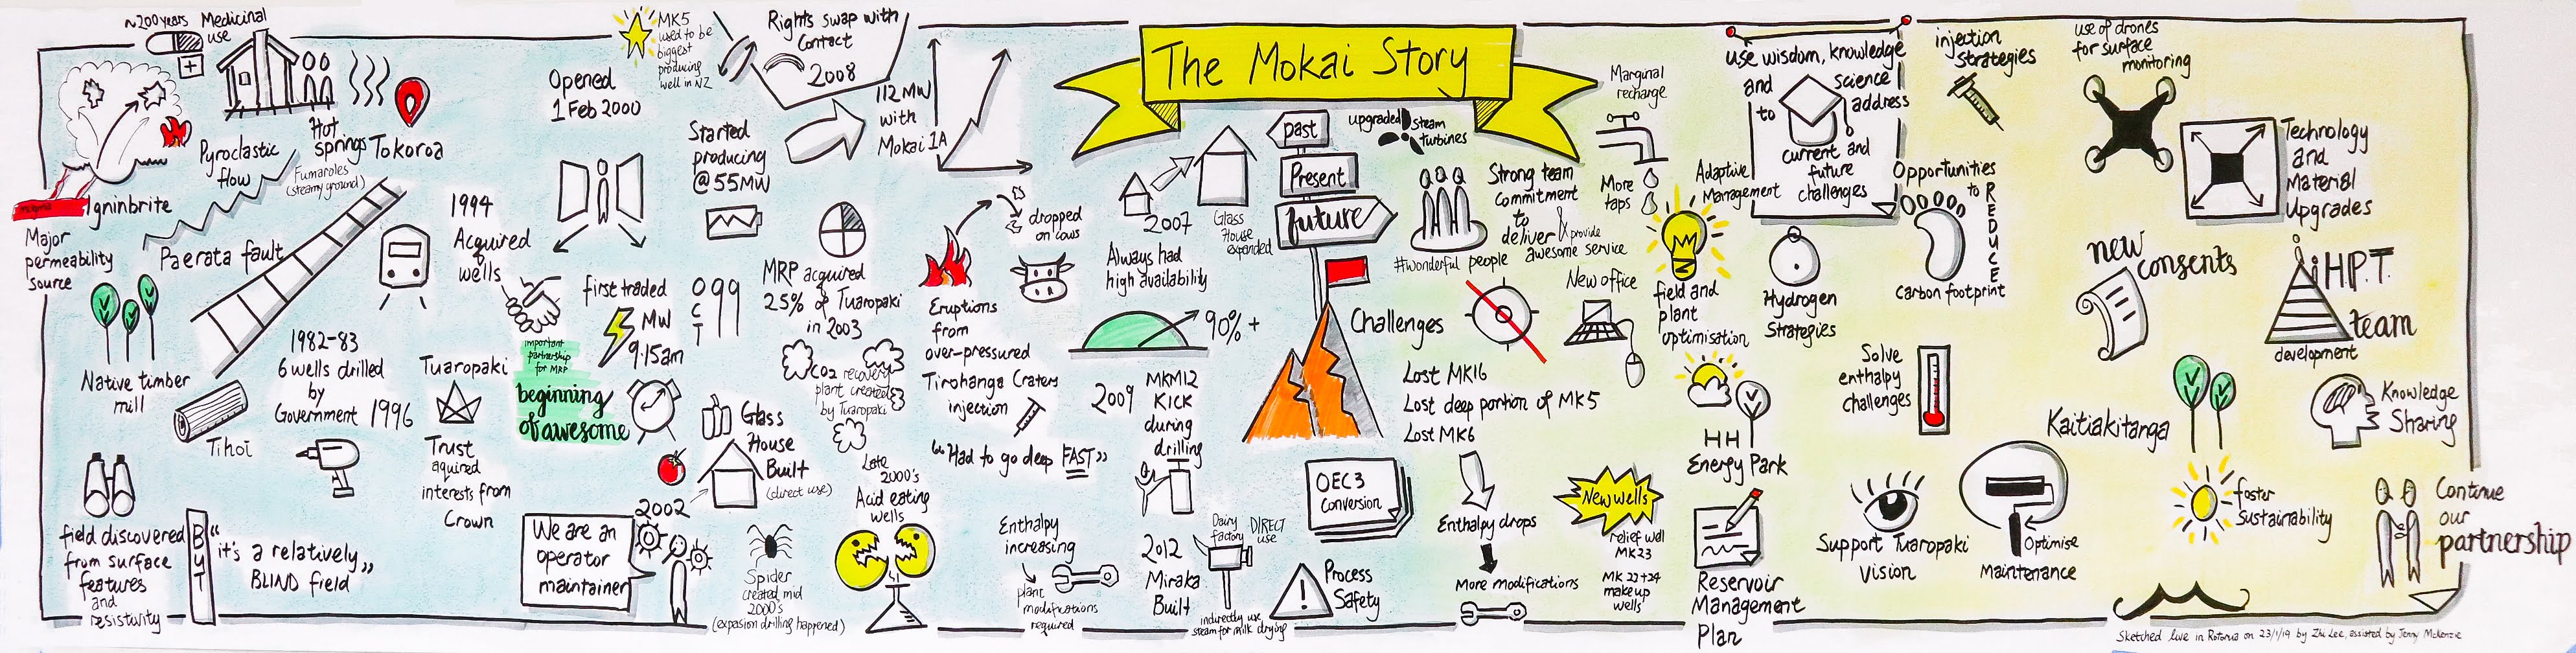 The Mokai Story
~200 years
Medicinal
use
Pyroclastic
flow
Hot
springs
Fumaroles
(steamy ground)
Tokoroa
Igninbrite
Major
permeability
source
Paerata fault
Native timber
mill
Tihoi
field discovered
from surface
features
and
resistivity
BUT
"it's a relatively"
BLIND field
1982-83
6 wells drilled
by
Government
1996
1994
Acquired
wells
Tuaropaki
Trust
aquired
interests from
Crown
important
partnership
for MRP
beginning
of awesome
Opened
1 Feb 2000
MK5
used to be
biggest
producing
well in NZ
Rights swap with
Contact
2008
112 MW
with
Mokai 1A
Started
producing
@ 55MW
first traded
MW
9.15am
OCT
099
MRP acquired
25% of Tuaropaki
in 2003
CO2 recovery
plant created
by Tuaropaki
Glass
House
Built
(direct use)
2002
We are an
operator
maintainer
Spider
created mid
2000's
(expasion drilling happened)
Late
2000's
Acid eating
wells
dropped
on cows
Eruptions
from
over-pressured
Tirohanga Craters
injection
"Had to go deep FAST"
Enthalpy
increasing
plant
modifications
required
2007
Glass
House
expanded
Always had
high availability
90% +
2009
MKM12
KICK
during
drilling
2012
Miraka
Built
Dairy
factory
DIRECT
use
indirectly use
steam for milk drying
past
Present
future
upgraded steam
turbines
Strong team
commitment
to
deliver & provide
awesome service
#wonderful people
Challenges
Lost MK16
Lost deep portion of MK5
Lost MK6
OEC3
conversion
Process
Safety
Enthalpy drops
More modifications
Marginal
recharge
More
taps
New office
New wells
relief well
MK23
MK 22+24
make up
wells
Adaptive
Management
field and
plant
optimisation
HH
Energy Park
Reservoir
Management
Plan
use wisdom, knowledge
and science
to address
current and
future
challenges
Hydrogen
Strategies
injection
strategies
Opportunities
to
REDUCE
Carbon footprint
Solve
enthalpy
challenges
Support Tuaropaki
Vision
Optimise
Maintenance
use of drones
for surface
monitoring
Technology
and
Material
Upgrades
new
consents
H.P.T.
team
development
Kaitiakitanga
Knowledge
Sharing
foster
sustainability
Continue
our
partnership
Sketched live in Rotorua on 23/1/19 by Zhi Lee, assisted by Jenny McKenzie